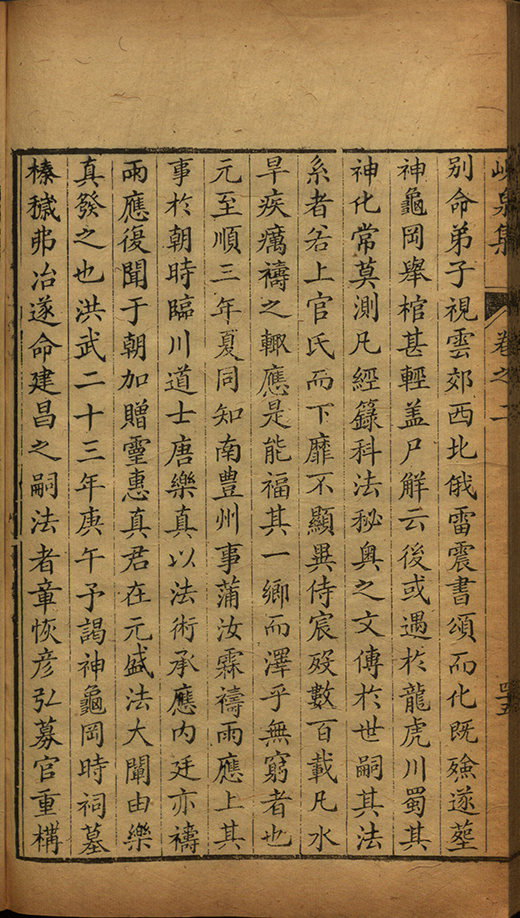 峴泉集
卷之二
四五
別命弟子視雲郊西北俄雷震書頌而化既殮遂塟
神龜岡舉棺甚輕盖尸解云後或遇於龍虎川蜀其
神化常莫測凡經籙科法秘奥之文傳於世嗣其法
系者若上官氏而下靡不顯異侍宸殁數百載凡水
旱疾癘禱之輙應是能福其一鄉而澤乎無窮者也
元至順三年夏同知南豊州事蒲汝霖禱雨應上其
事於朝時臨川道士唐樂真以法術承應内廷亦禱
雨應復聞于朝加贈靈惠真君在元盛法大闡由樂
真發之也洪武二十三年庚午予謁神龜岡時祠墓
榛穢弗冶遂命建昌之嗣法者章恢彦弘募官重構